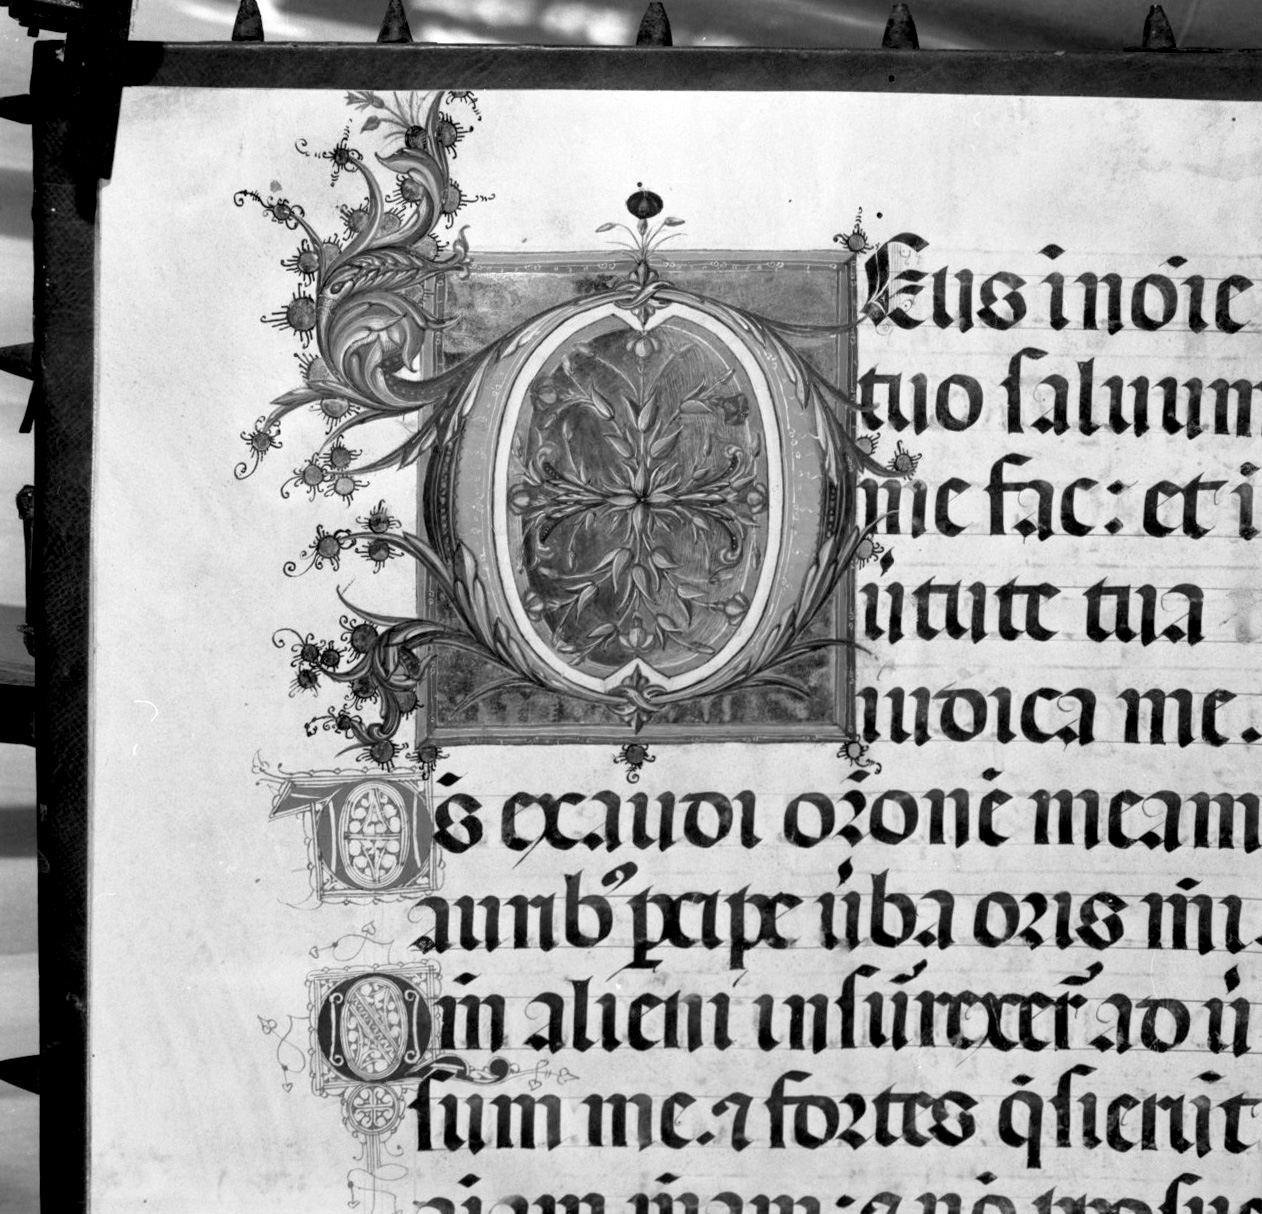 DEus i noie
tuo ſaluum
me fac: et i
uirtute tua
iudica me.
Ds̄ exaudi orōne meam
auribꝰ ꝑcipe uba oris mi.
Qm̄ alieni inſurrexert adu
ſum me. ⁊ fortes q̄ſierūt
aīam meam: & nō ꝓpoſue